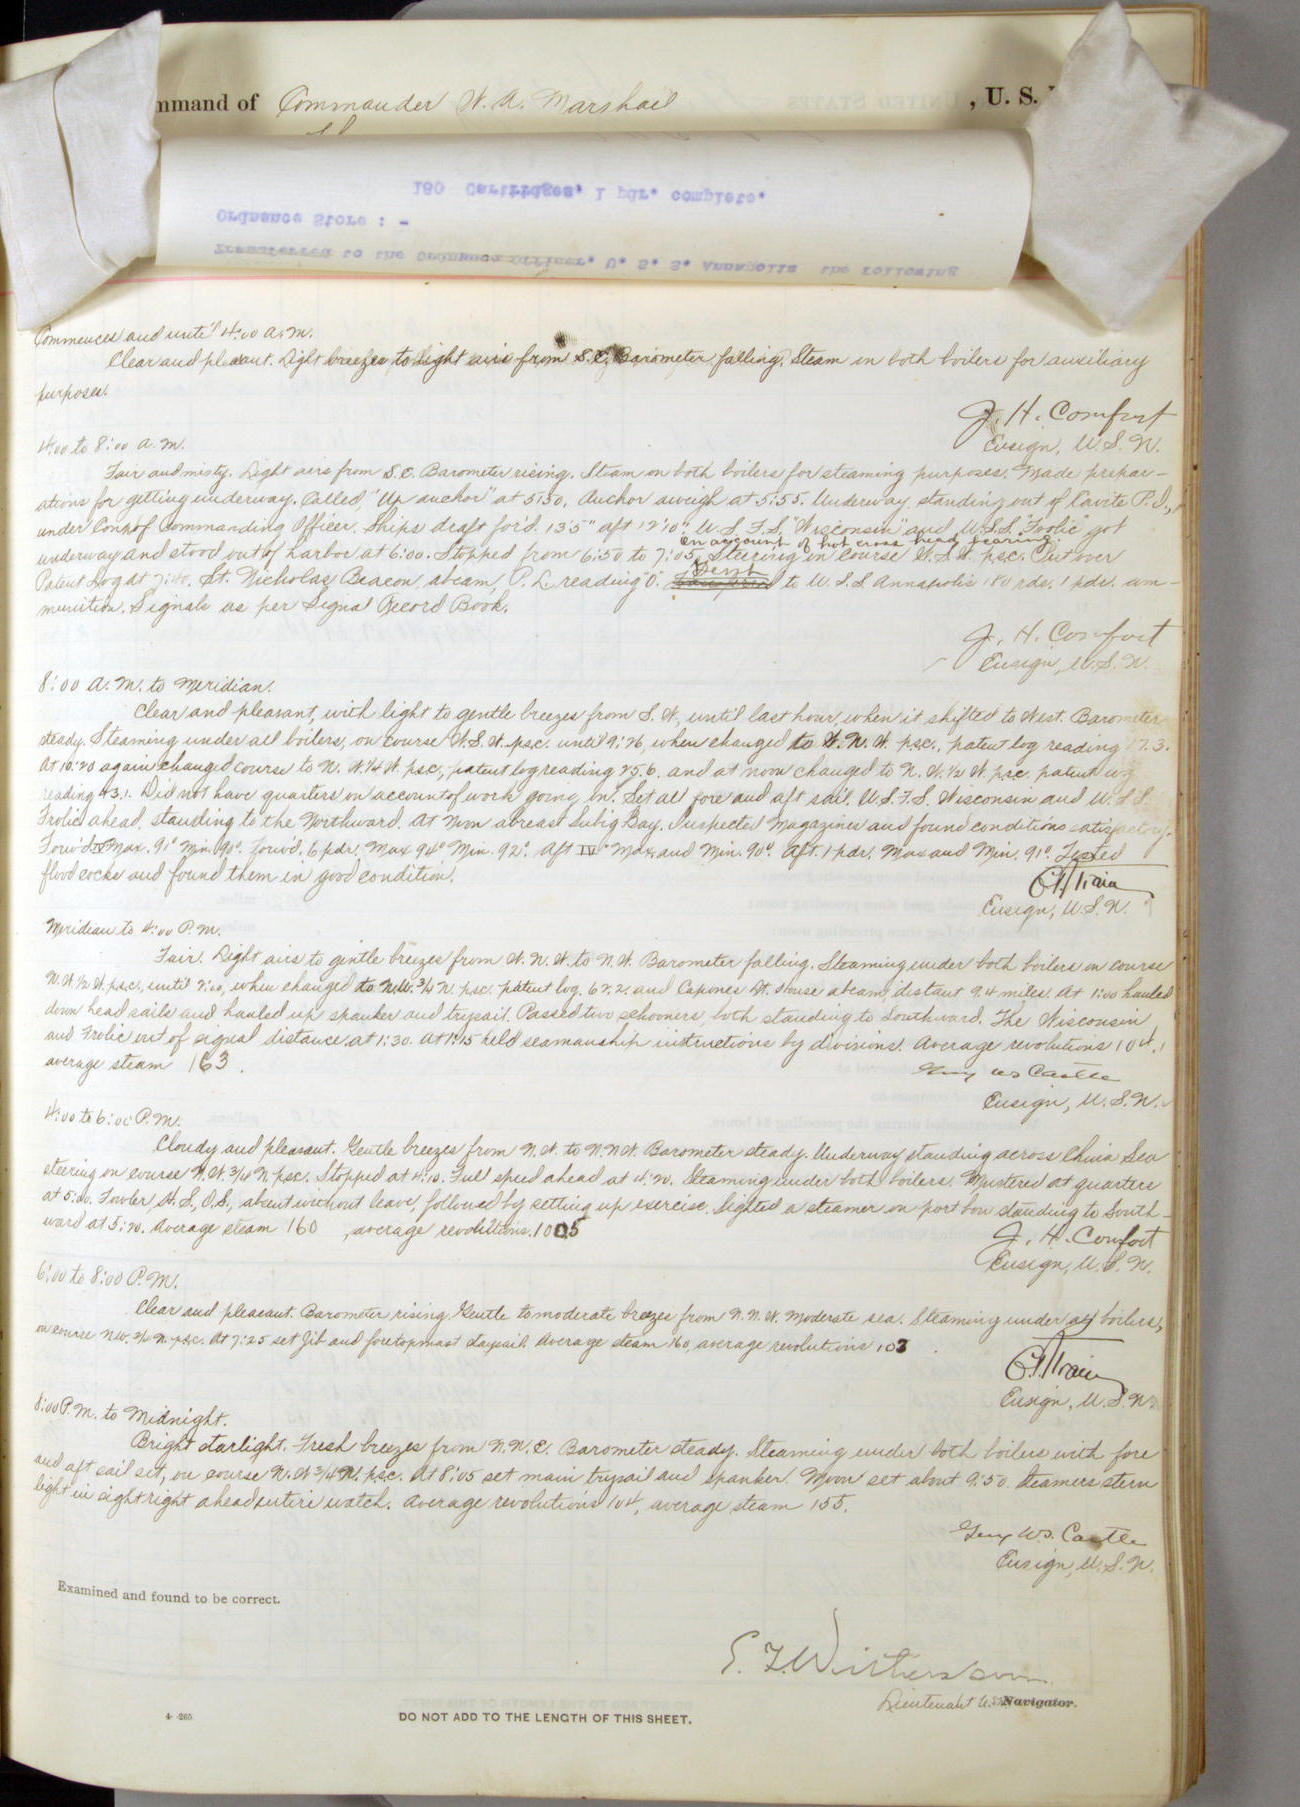 mmand of Commander W. A. Marshall , U. S.
180 Cartridges, 1 pdr. complete.
Ordnance Store : -
Transferred to the Ordnance Officer, U. S. S. Annapolis the following
Commences and until 4:00 A.M.
Clear and pleasant. Light breezes to light airs from S.E. Barometer falling. Steam in both boilers for auxiliary
purposes.
J. H. Comfort
Ensign, U.S.N.
4:00 to 8:00 A.M.
Fair and misty. Light airs from S.E. Barometer rising. Steam on both boilers for steaming purposes. Made prepar-
ations for getting underway. Called, "Up anchor" at 5:50. Anchor aweigh at 5:55. Underway, standing out of Cavite P.I.,
under Conn of Commanding Officer. Ships draft for'd. 13'5" aft 12'10". U.S.F.S. "Wisconsin" and U.S.S. "Frolic" got
on account of hot cross head bearing.
underway and stood out of harbor at 6:00. Stopped from 6:50 to 7:05, Steering on course W.S.W. psc. Put over
Patent Log at 7:40, St. Nicholas Beacon abeam, P. L. reading 0. Sent to U.S.S. Annapolis 180 rds. 1 pdr. am-
munition. Signals as per Signal Record Book.
J. H. Comfort
Ensign, U.S.N.
8:00 A.M. to Meridian.
Clear and pleasant, with light to gentle breezes from S.W. until last hour, when it shifted to West. Barometer
steady. Steaming under all boilers, on course W.S.W. psc. until 9:26, when changed to W.N.W. psc., patent log reading 17.3.
At 10:20 again changed course to N.W.1/4 W. psc., patent log reading 25.6. and at noon changed to N.W.1/2 W. psc. patent log
reading 43.1. Did not have quarters on account of work going on. Set all fore and aft sail. U.S.F.S. Wisconsin and U.S.S.
Frolic ahead, standing to the Northward. At Noon abreast Subig Bay. Inspected Magazines and found conditions satisfactory.
Forw'd IV" Max. 91° Min. 90°. Forw'd. 6 pdr. Max 94° Min. 92°. Aft IV" Max. and Min. 90°. Aft. 1 pdr. Max and Min. 91°. Tested
flood cocks and found them in good condition.
C. R. Train
Ensign, U.S.N.
Meridian to 4:00 P.M.
Fair. Light airs to gentle breezes from W.N.W. to N.W. Barometer falling. Steaming under both boilers on course
N.W.1/2 W. psc., until 2:00, when changed to N.W. 3/4 N. psc. patent log. 62.2. and Capones Lt. House abeam, distant 9.4 miles. At 1:00 hauled
down head sails and hauled up spanker and trysail. Passed two schooners, both standing to Southward. The Wisconsin
and Frolic out of signal distance at 1:30. At 1:15 held seamanship instructions by divisions. Average revolutions 104.1
average steam 163.
Guy W.S. Castle
Ensign, U.S.N.
4:00 to 6:00 P.M.
Cloudy and pleasant. Gentle breezes from N.W. to N.N.W. Barometer steady. Underway standing across China Sea
steering on course N.W. 3/4 N. psc. Stopped at 4:10. Full speed ahead at 4:20. Steaming under both boilers. Mustered at quarters
at 5:00. Fowler, H. S., O.S., absent without leave, followed by setting up exercise. Sighted a steamer on port bow standing to South-
ward at 5:20. Average steam 160, average revolutions. 100.5
J. H. Comfort
Ensign, U.S.N.
6:00 to 8:00 P.M.
Clear and pleasant. Barometer rising. Gentle to moderate breezes from N.N.W. Moderate sea. Steaming under all boilers,
on course N.W. 3/4 N. psc. At 7:25 set Jib and foretopmast staysail. Average steam 160, average revolutions 103.
C. R. Train
Ensign, U.S.N.
8:00 P.M. to Midnight.
Bright starlight. Fresh breezes from N.N.E. Barometer steady. Steaming under both boilers with fore
and aft sail set, on course N.W. 3/4 N. psc. At 8:05 set main trysail and spanker. Moon set about 9:50. Steamers stern
light in sight right ahead entire watch. Average revolutions 104, average steam 155.
Guy W.S. Castle
Ensign, U.S.N.
Examined and found to be correct.
Lieutenant U.S.N. Navigator.
4-265
DO NOT ADD TO THE LENGTH OF THIS SHEET.